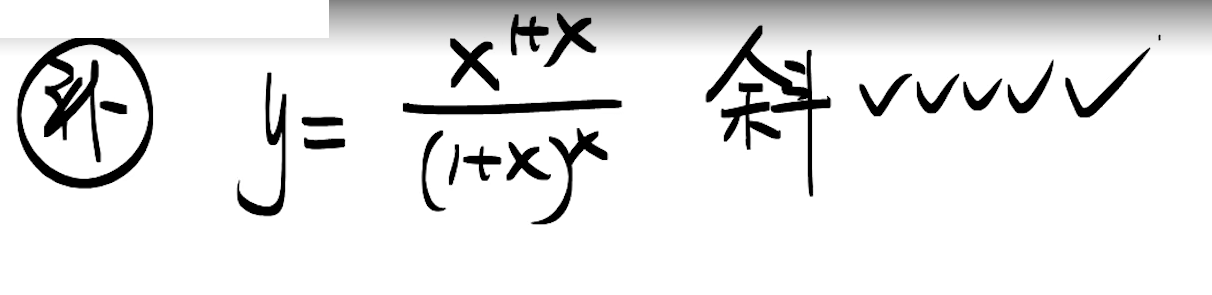 补 y = \frac{x^{1+x}}{(1+x)^x} 斜 ✓✓✓✓✓